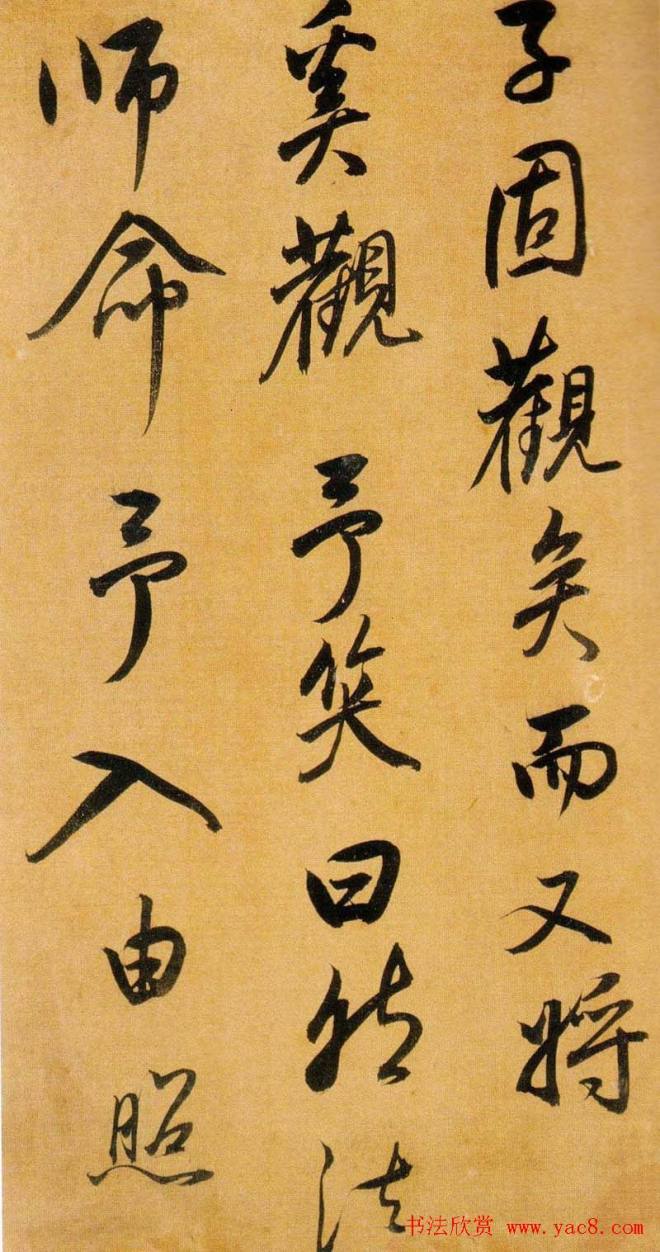 子固觀矣而又將
奚觀予笑曰然法
師命予入由照
书法欣赏 www.yac8.com